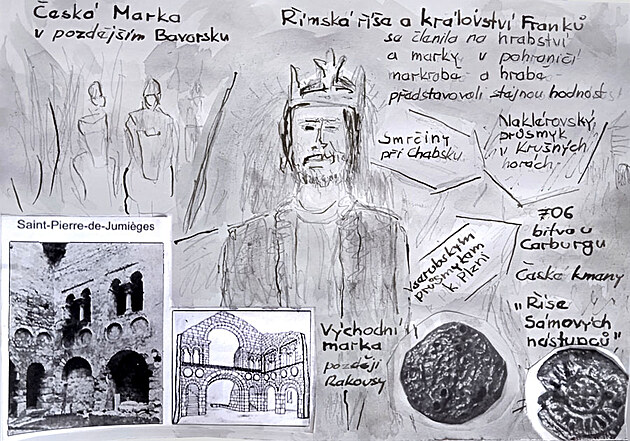 Česká Marka
v pozdějším Bavorsku
Římská říše a království Franků
se členila na hrabství
a marky v pohraničí
markrabě a hrabě
představovali stejnou hodnost
Smrčiny
při Chabsku
Nakléřovský
průsmyk
v Krušných
horách
706
bitva u
Carburgu
České kmany
„Říše
Sámových
nástupců"
Všerubským
průsmykem
k Plzni
Saint-Pierre-de-Jumièges
Východní
marka
později
Rakousy